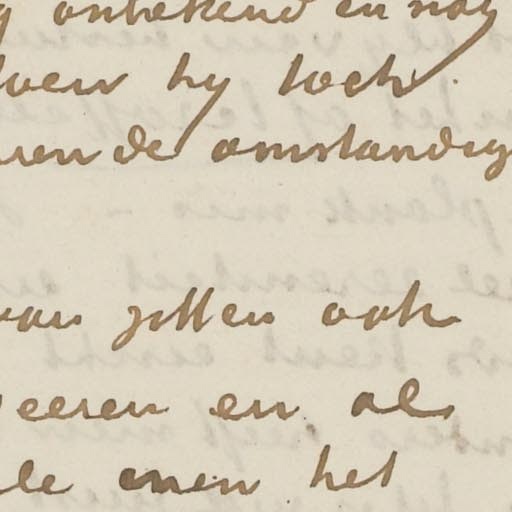 onbekend en nog
hy toch
de omstandig
van zetten ook
eeren en als
men het